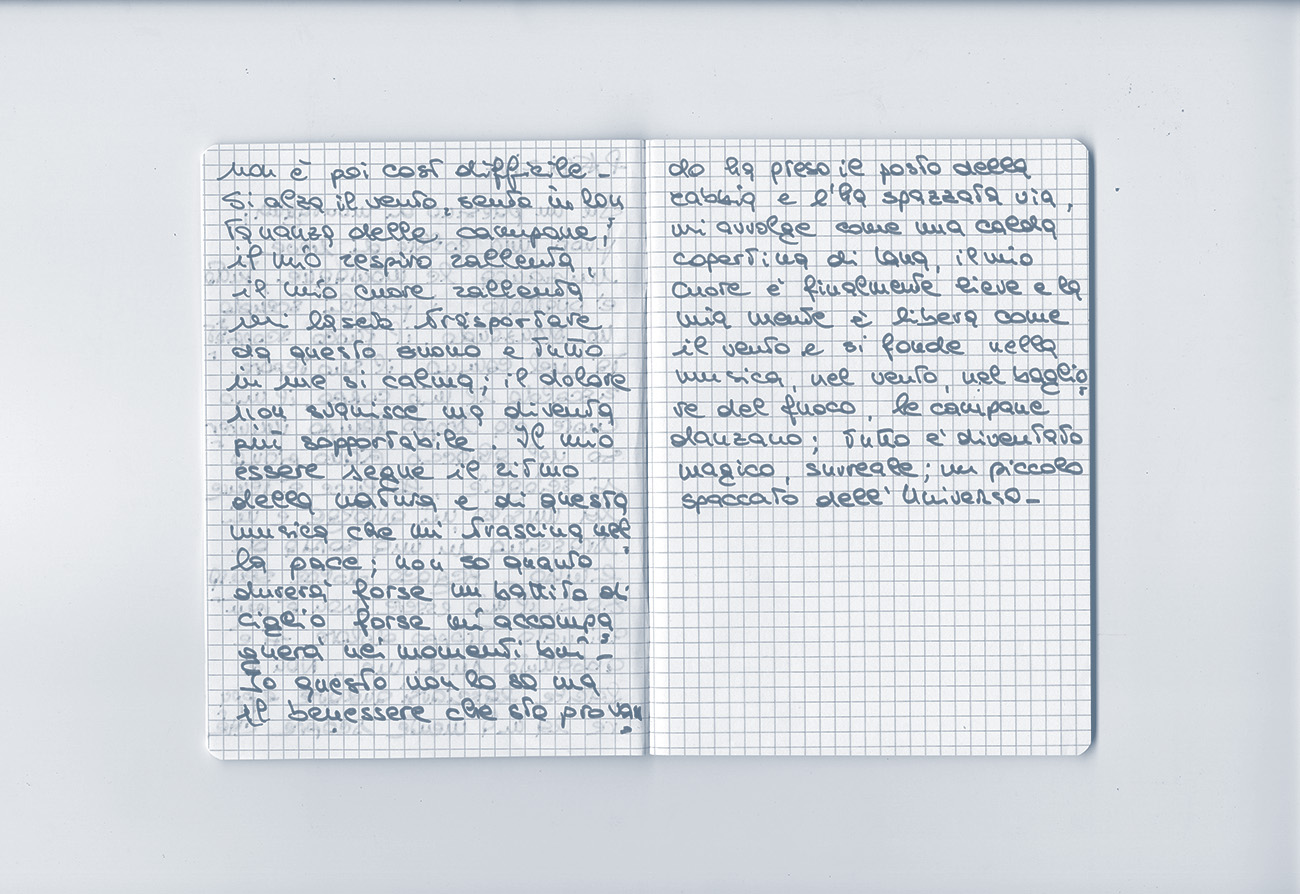 non è poi così difficile -
Si alza il vento, sento in lon
tananza delle campane,
il mio respiro rallenta,
il mio cuore rallenta
mi lascio trasportare
da questo suono e tutto
in me si calma; il dolore
non svanisce ma diventa
più sopportabile. Il mio
essere segue il ritmo
della natura e di questa
musica che mi trascina nel
la pace; non so quanto
durerà forse un battito di
ciglio forse mi accompa
gnerà nei momenti bui -
Io questo non lo so ma
il benessere che sto provan
do ha preso il posto della
rabbia e l'ha spazzata via,
mi avvolge come una calda
copertina di lana, il mio
cuore è finalmente lieve e la
mia mente è libera come
il vento e si fonde nella
musica, nel vento, nel baglio
re del fuoco, le campane
danzano; tutto è diventato
magico, surreale; un piccolo
spaccato dell'Universo -